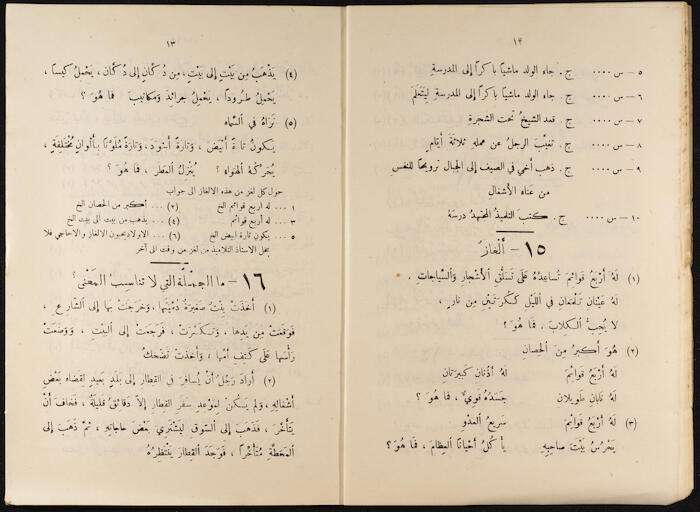 ١٢
٥ – س ٠٠٠٠ ج. جاء الولد ماشياً باكراً إلى المدرسةِ
٦ – س ٠٠٠٠ ج. جاء الولد ماشياً باكراً إلى المدرسةِ ليتعلمَ
٧ – س ٠٠٠٠ ج. قعد الشيخُ تحت الشجرةِ
٨ – س ٠٠٠٠ ج. تغيّبَ الرجلُ عن عملهِ ثلاثةَ أيّامٍ
٩ – س ٠٠٠٠ ج. ذهب أخي في الصيف إلى الجبال ترويحاً للنفس
من عناء الأشغال
١٠ – س ٠٠٠٠ ج. كتب التلميذُ المجتهدُ درسَهُ
١٥ – أَلْغَازٌ
(١) لَهُ أَرْبَعُ قَوَائِمَ تُسَاعِدُهُ عَلَى تَسَلُّقِ الْأَشْجَارِ وَالسِّيَاجَاتِ.
لَهُ عَيْنَانِ تَلْمَعَانِ فِي اللَّيْلِ كَكُرَتَيْنِ مِنْ نَارٍ،
لَا يُحِبُّ الْكِلَابَ، فَمَا هُوَ؟
(٢) هُوَ أَكْبَرُ مِنَ الْحِصَانِ
لَهُ أَرْبَعُ قَوَائِمَ لَهُ أُذْنَانِ كَبِيرَتَانِ
لَهُ نَابَانِ طَوِيلَانِ جَسَدُهُ قَوِيٌّ، فَمَا هُوَ؟
(٣) لَهُ أَرْبَعُ قَوَائِمَ سَرِيعُ الْعَدْوِ
يَحْرُسُ بَيْتَ صَاحِبِهِ يَأْكُلُ أَحْيَانًا الْعِظَامَ، فَمَا هُوَ؟
١٣
(٤) يَذْهَبُ مِنْ بَيْتٍ إِلَى بَيْتٍ، مِنْ دُكَّانٍ إِلَى دُكَّانٍ، يَحْمِلُ كِيسًا،
يَحْمِلُ طُرُودًا، يَحْمِلُ جَرَائِدَ وَمَكَاتِيبَ فَمَا هُوَ؟
(٥) نَرَاهُ فِي السَّمَاءِ
يَكُونُ تَارَةً أَبْيَضَ، وَتَارَةً أَسْوَدَ، وَتَارَةً مُلَوَّنًا بِأَلْوَانٍ مُخْتَلِفَةٍ،
يُحَرِّكُهُ الْهَوَاءُ؟ يُنْزِلُ الْمَطَرَ، فَمَا هُوَ؟
حول كل لغز من هذه الالغاز الى جواب
١ ... له اربع قوائم الخ (٢) ... أكبر من الحصان الخ
٣ ... له أربع قوائم (٤) ... يذهب من بيت الى بيت الخ
٥ ... يكون تارة ابيض الخ (٦) ... الاولاد يحبون الالغاز والاحاجي فلا
يبخل الاستاذ التلاميذ من لغز من وقت الى آخر
١٦ – ما الجملة التي لا تناسب المَعْنى؟
(١) أَخَذَتْ بِنْتٌ صَغِيرَةٌ دُمْيَتَهَا، وَخَرَجَتْ بِهَا إِلَى الشَّارِعِ،
فَوَقَعَتْ مِنْ يَدِهَا، وَتَكَسَّرَتْ، فَرَجَعَتْ إِلَى الْبَيْتِ، وَوَضَعَتْ
رَأْسَهَا عَلَى كَتِفِ أُمِّهَا، وَأَخَذَتْ تَضْحَكُ
(٢) أَرَادَ رَجُلٌ أَنْ يُسَافِرَ فِي الْقِطَارِ إِلَى بَلَدٍ بَعِيدٍ لِقَضَاءِ بَعْضِ
أَشْغَالِهِ، وَلَمْ يَكُنْ لِمَوْعِدِ سَفَرِ الْقِطَارِ إِلَّا دَقَائِقُ قَلِيلَةٌ، فَخَافَ أَنْ
يَتَأَخَّرَ، فَذَهَبَ إِلَى السُّوقِ لِيَشْتَرِيَ بَعْضَ حَاجَاتِهِ، ثُمَّ ذَهَبَ إِلَى
الْمَحَطَّةِ مُتَأَخِّرًا، فَوَجَدَ الْقِطَارَ يَنْتَظِرُهُ